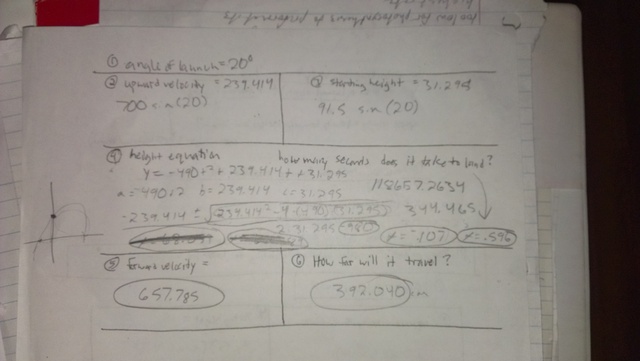 ① angle of launch = 20°
② upward velocity = 239.414
700 sin(20)
③ starting height = 31.295
91.5 sin(20)
④ height equation how many seconds does it take to land?
y = -490t² + 239.414t + 31.295
a = -490t2 b = 239.414 c = 31.295
118657.2634
-239.414 ± √239.414² - 4(-490)(31.295)
344.465
980
x = -.107 x = .596
⑤ forward velocity =
657.785
⑥ How far will it travel?
392.040 cm